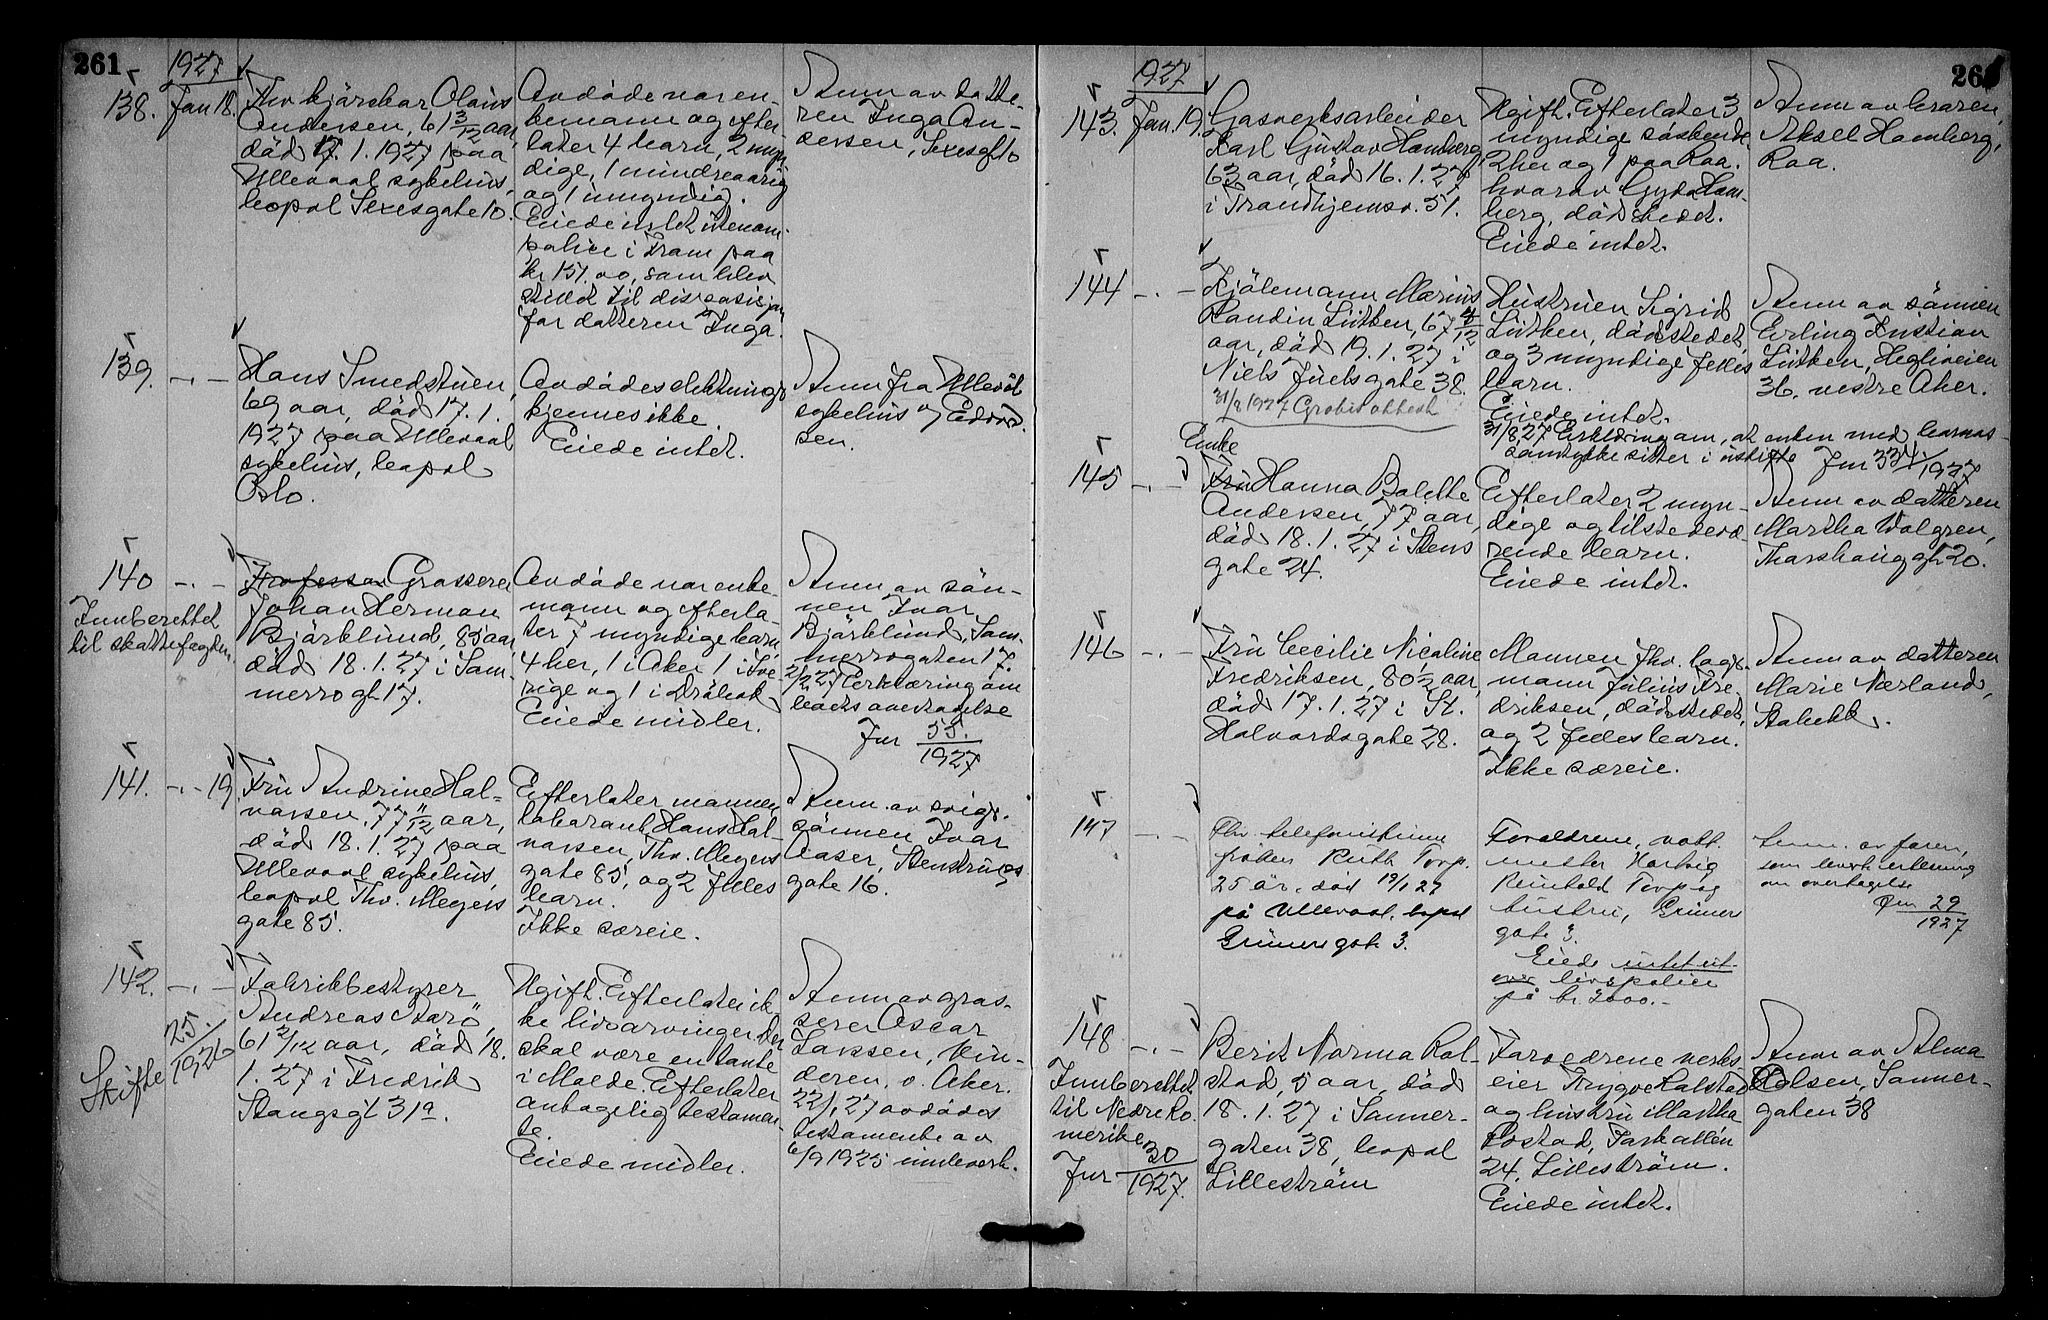 261
1927
138. Jan 18.
Fhv kjørekar Olaus
Andersen, 61 3/12 aar,
död 17. 1. 1927 paa
Ullevaal sykehus,
bopæl Sexesgate 10.
Avdöde var en-
kemann og efter-
later 4 barn, 2 myn
dige, 1 mindreaarig
og 1 umyndig.
Eiede intet utenom
police i Fram paa
kr 151.00, som blev
stillet til disposisjon
for datteren Inga.
Anm av datte-
ren Inga An-
dersen, Sexesgt 10
139. -.-
Hans Smedstuen,
69 aar, död 17. 1.
1927 paa Ullevaal
sykehus, bopæl
Oslo.
Avdödes slektninger
kjennes ikke.
Eiede intet.
Anm fra Ullevål
sykehus v/ Edvard-
sen.
140 -.-
Innberettet
til skattefogden.
Professor Grosserer
Johan Herman
Björklund, 85 aar,
död 18. 1. 27 i Som-
merrogt 17.
Avdöde var enke-
mann og efterla-
ter 7 myndige barn,
4 her, 1 i Aker 1 i Sve
rige og 1 i Dröbak
Eiede midler.
Anm av søn-
nen Ivar
Björklund, Som-
merrogaten 17.
2/2 27 Erklæring om
boets overtagelse
Jnr 55./1927
141. -.- 19
Fru Andrine Hal-
vorsen, 77 11/12 aar,
död 18. 1. 27 paa
Ullevaal sykehus,
bopæl Thv. Meyers
gate 85.
Efterlater mannen
laborant Hans Hal-
vorsen, Thv. Meyers
gate 85, og 2 felles
barn.
Ikke særeie.
Anm. av svige-
sönnen Ivar
Aaser, Stenstrups
gate 16.
142. -.-
Skifte 25./1926
Fabrikbestyrer
Andreas Aarö,
61 2/12 aar, död 18.
1. 27 i Fredrik
Stangsgt 31a.
Ugift. Efterlater ik-
ke livsarvinger. Der
skal være en tante
i Molde. Efterlater
antagelig testamen-
te.
Eiede midler.
Anm av gros-
serer Oscar
Larssen, Vin-
deren, v. Aker.
22/1 27 avdödes
testamente av
6/9 1925 innlevert.
1927
143. Jan. 19.
Gasverksarbeider
Karl Gustav Hamberg
63 aar, död 16. 1. 27
i Trondhjemsv. 51.
Ugift. Efterlater 3
myndige söskende
2 her og 1 paa Roa.
hvorav Gyda Ham-
berg, dödstedet.
Eiede intet.
Anm av broren,
Aksel Hamberg,
Roa.
144 -.-
Kjölemann Marius
Randin Lütken, 67 4/12
aar, död 19. 1. 27 i
Niels Juels gate 38.
31/8 1927 Grobis attest
Hustruen Sigrid
Lütken, dödstedet,
og 3 myndige felles
barn.
Eiede intet.
31/8 27 Erklæring om, at enken med barnas
samtykke sitter i uskifte Jnr 334/1927
Anm av sönnen
Erling Kristian
Lütken, Heglieveien
36. vestre Aker.
145 -.-
Enke
Fru Hanna Bolette
Andersen, 77 aar,
död 18. 1. 27 i Stens
gate 24.
Efterlater 2 myn-
dige og tilstedevæ-
rende barn.
Eiede intet.
Anm av datteren
Martha Walgren,
Thorshauggt 20.
146 -.-
Fru Cecilie Nicoline
Fredriksen, 80 1/2 aar,
död 17. 1. 27 i St.
Halvardsgate 28.
Mannen fhv. lager-
mann Julius Fre-
driksen, dödstedet,
og 2 felles barn.
Ikke særeie.
Anm av datteren
Marie Nærland,
Stabekk.
147 -.-
Fhv. telefonistinne
fröken Ruth Torp.
25 år. död 19/1 27
på Ullevaal, bopæl
Grüners gate 3.
Foreldrene, vakt-
mester Hartvig
Reinhold Torp og
hustru, Grüners
gate 3.
Eiede intet ut-
over livspolice
på kr. 2000.-
Anm. av faren,
som leverte erklæring
om overtagelse
Jnr 29/1927
148 -.-
Innberettet
til Nedre Ro-
merike
Jnr 30/1927.
Berit Norma Rol-
stad, 5 aar, död
18. 1. 27 i Sanner-
gaten 38, bopæl
Lilleström
Forældrene verks-
eier Trygve Rolstad
og hustru Martha
Rostad, Parkalléen
24, Lilleström.
Eiede intet.
Anm av Alma
Olsen, Sanner-
gaten 38